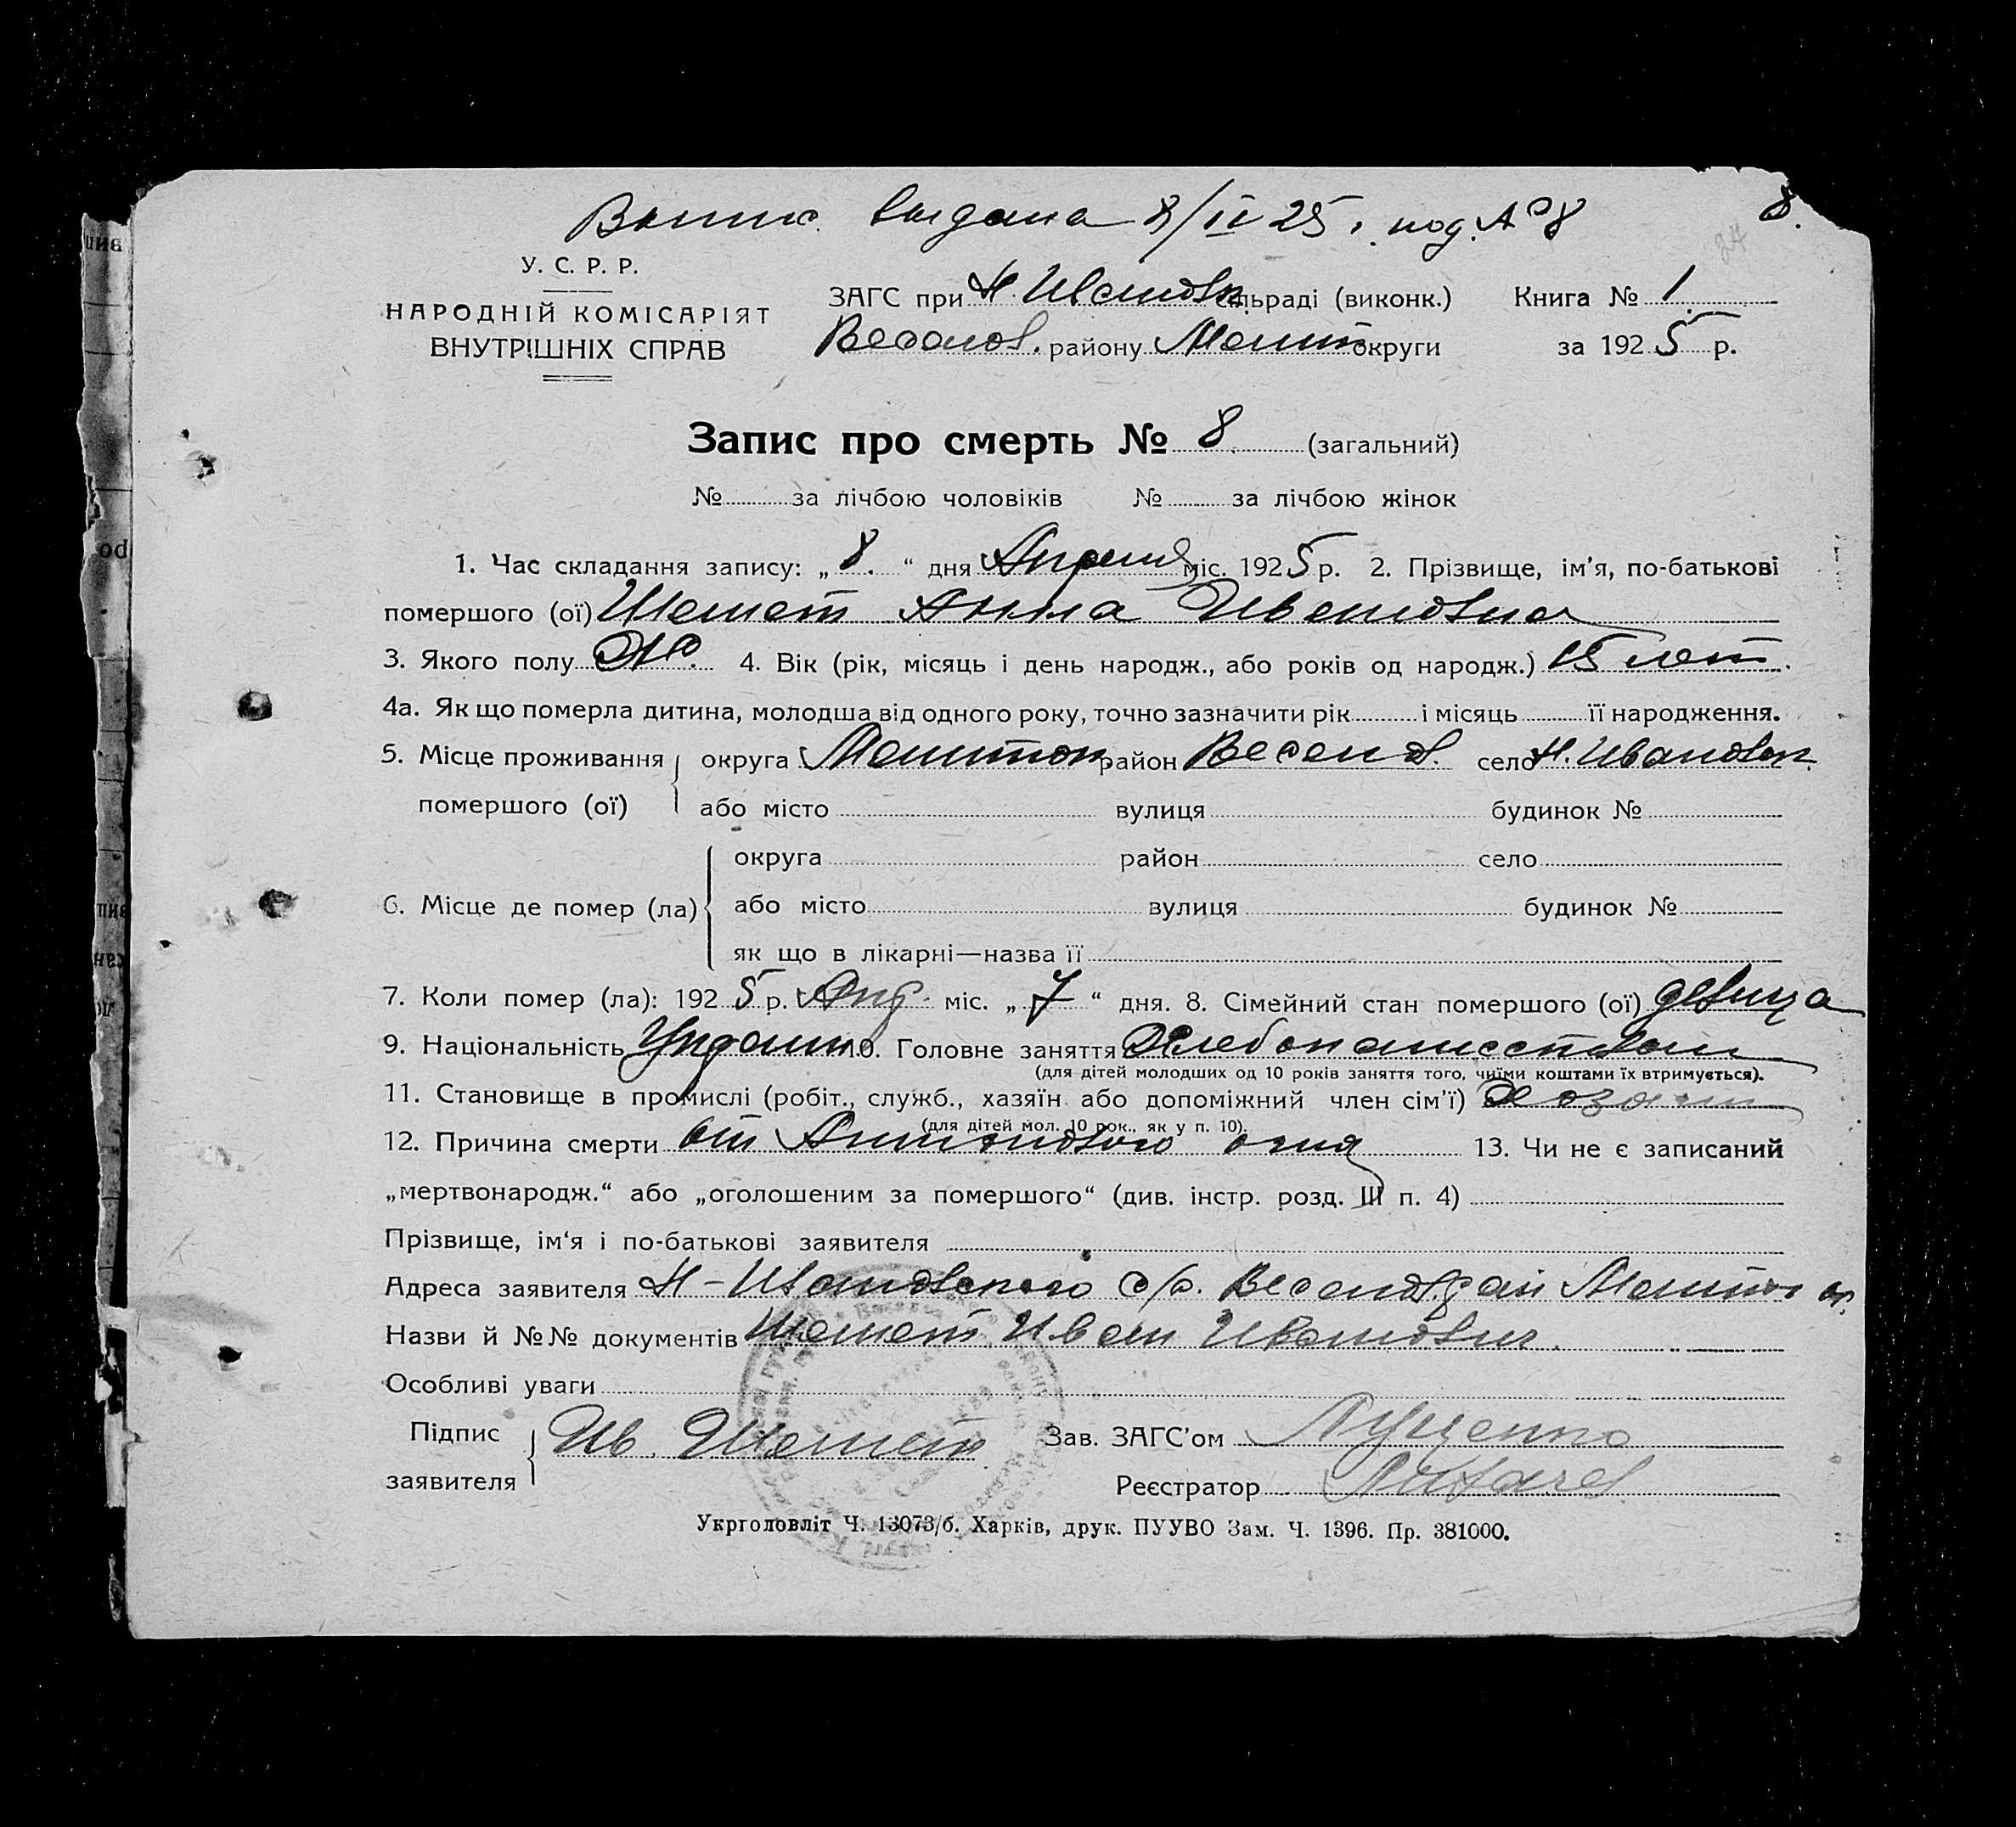 Выпис. выдана 8/IV 25 г. под. № 8
8.
24
У. С. Р. Р.
НАРОДНІЙ КОМІСАРІЯТ
ВНУТРІШНІХ СПРАВ
ЗАГС при Н. Ивановк. сільраді (виконк.) Книга № 1
Веселов. району Мелит округи за 1925 р.
Запис про смерть № 8. (загальний)
№ за лічбою чоловіків № за лічбою жінок
1. Час складання запису: „8.“ дня Апреля міс. 1925 р. 2. Прізвище, ім’я, по-батькові
помершого (ої) Шемет Анна Ивановна
3. Якого полу Ж. 4. Вік (рік, місяць і день народж., або років од народж.) 15 лет.
4а. Як що померла дитина, молодша від одного року, точно зазначити рік і місяць її народження.
5. Місце проживання округа Мелитоп. район Веселов. село Н. Ивановк.
помершого (ої) або місто вулиця будинок №
округа район село
6. Місце де помер (ла) або місто вулиця будинок №
як що в лікарні—назва її
7. Коли помер (ла): 1925 р. Апр. міс. „7“ дня. 8. Сімейний стан помершого (ої) девица
9. Національність Украин 10. Головне заняття Хлебопашеством
(для дітей молодших од 10 років заняття того, чиїми коштами їх втримується).
11. Становище в промислі (робіт., служб., хазяїн або допоміжний член сім’ї)
(для дітей мол. 10 рок., як у п. 10).
12. Причина смерти от Антонового огня 13. Чи не є записаний
„мертвонародж.“ або „оголошеним за помершого“ (див. інстр. розд. III п. 4)
Прізвище, ім‘я і по-батькові заявителя
Адреса заявителя Н-Ивановского с/с. Веселов. рай Мелитоп ок.
Назви й №№ документів Шемет Иван Иванович.
Особливі уваги
Підпис
заявителя Ив. Шемет Зав. ЗАГС’ом Луценко
Реєстратор
Укрголовліт Ч. 13073/б. Харків, друк. ПУУВО Зам. Ч. 1396. Пр. 381000.